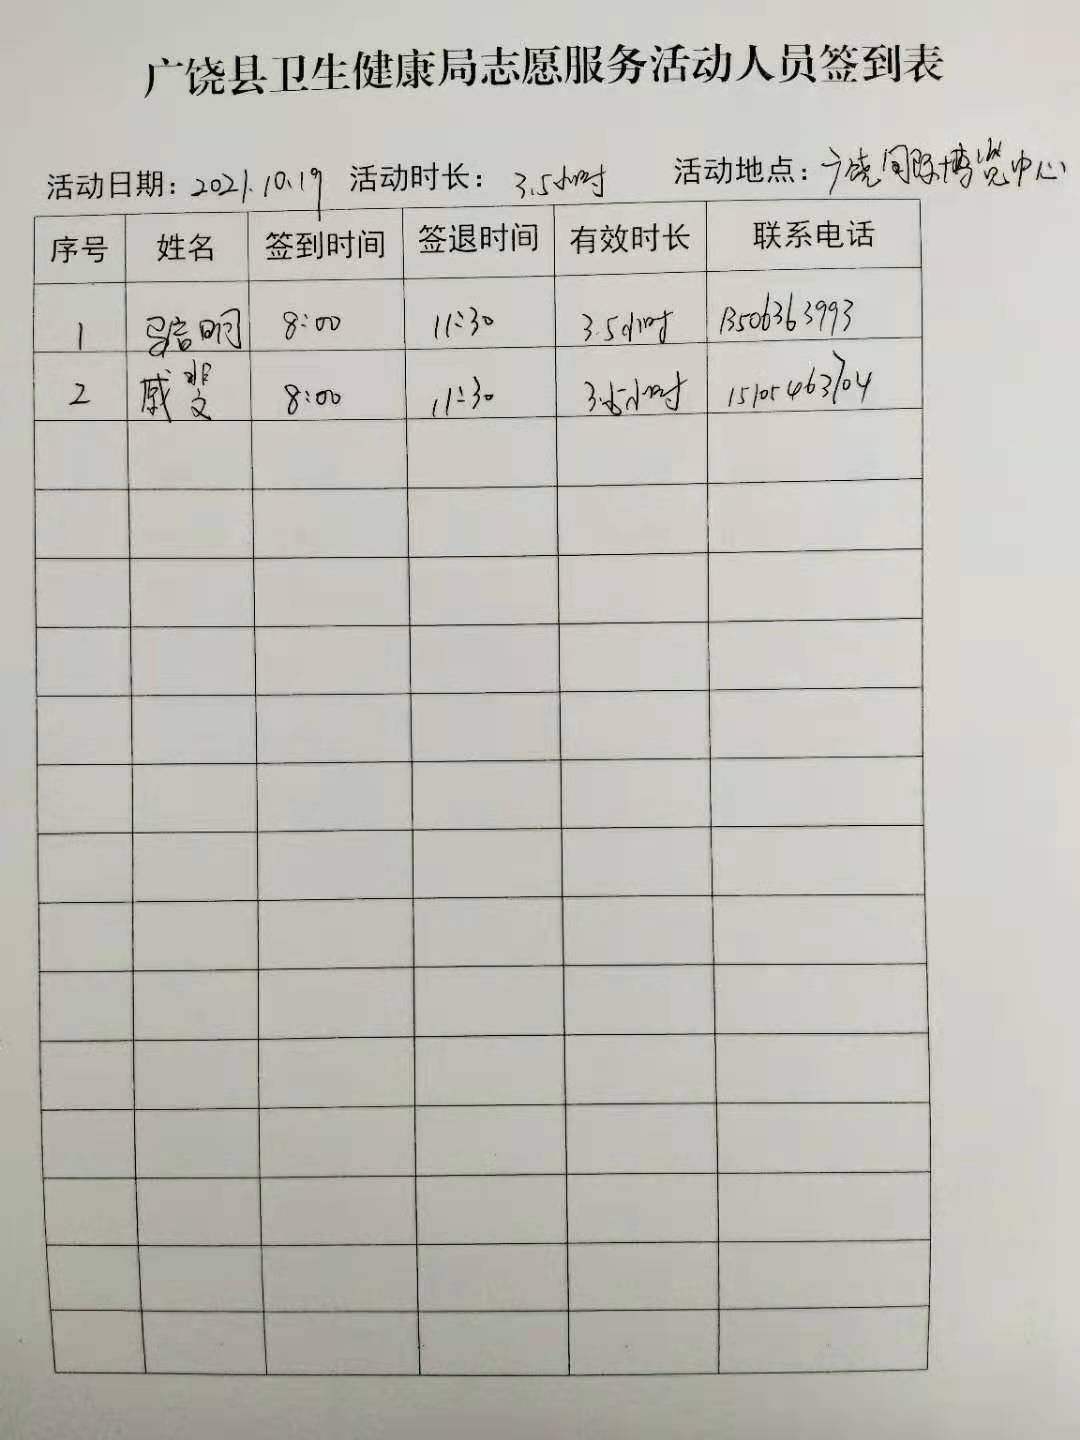 广饶县卫生健康局志愿服务活动人员签到表
活动日期：2021.10.19 活动时长：3.5小时 活动地点：广饶国际博览中心
序号 姓名 签到时间 签退时间 有效时长 联系电话
1 8:00 11:30 3.5小时 13506363993
2 戚斐 8:00 11:30 3.5小时 15105463704